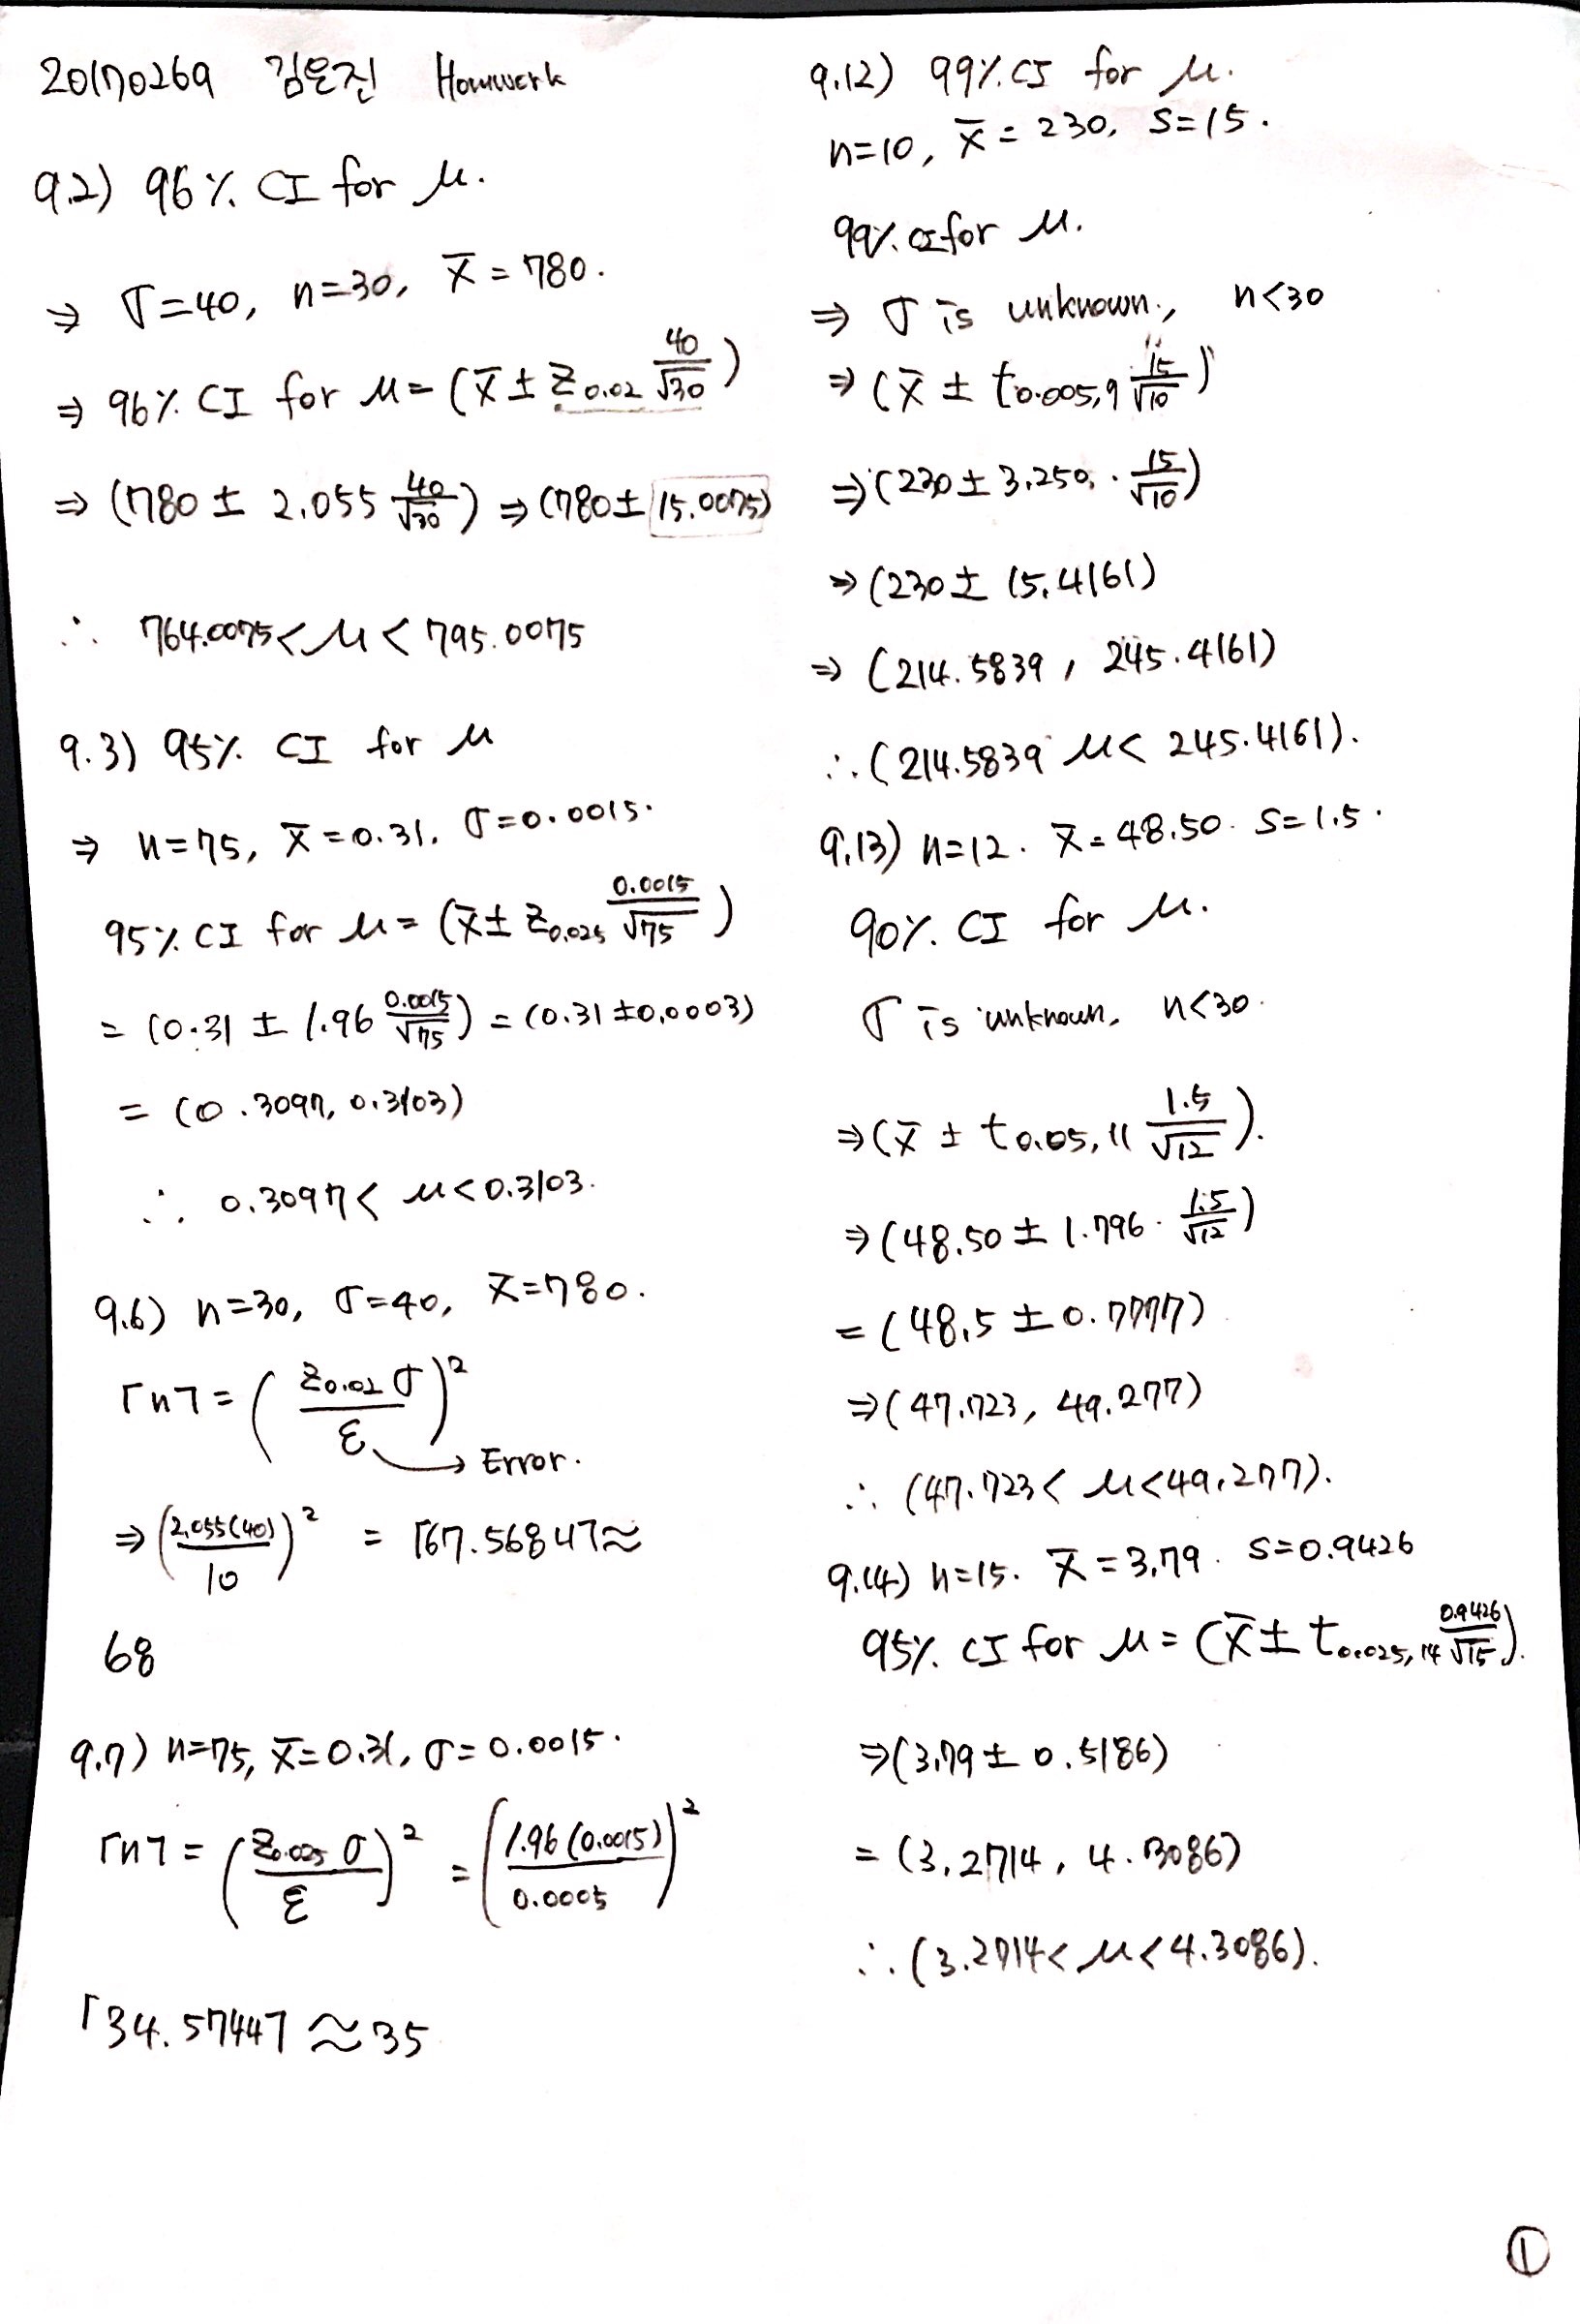 20170269 김은진 Homework
9.2) 96% CI for μ.
⇒ σ=40, n=30, x̄=780.
⇒ 96% CI for μ=(x̄ ± z0.02 40/√30)
⇒ (780 ± 2.055 40/√30) ⇒ (780± 15.0075)
∴ 764.0075<μ<795.0075
9.3) 95% CI for μ
⇒ n=75, x̄=0.31. σ=0.0015.
95% CI for μ= (x̄± z0.025 0.0015/√75)
= (0.31 ± 1.96 0.0015/√75) = (0.31 ±0.0003)
= (0.3097, 0.3103)
∴ 0.3097< μ<0.3103.
9.6) n=30, σ=40, x̄=780.
⌈n⌉ = (z0.02 σ/ε)²
→ Error.
⇒ (2.055(40)/10)² = ⌈67.5684⌉≈
68
9.7) n=75, x̄=0.31, σ=0.0015.
⌈n⌉ = (z0.025 σ/ε)² = (1.96(0.0015)/0.0005)²
⌈34.5744⌉ ≈35
9.12) 99% CI for μ.
n=10, x̄=230, S=15.
99% CI for μ.
⇒ σ is unknown., n<30
⇒ (x̄ ± t0.005,9 15/√10)
⇒ (230 ± 3.250 · 15/√10)
⇒ (230± 15.4161)
⇒ (214.5839, 245.4161)
∴ (214.5839 μ< 245.4161).
9.13) n=12. x̄=48.50. S=1.5.
90% CI for μ.
σ is unknown, n<30.
⇒(x̄ ± t0.05,11 1.5/√12).
⇒ (48.50 ± 1.796 · 1.5/√12)
= (48.5 ±0.7777)
⇒(47.723, 49.277)
∴ (47.723< μ<49.277).
9.14) n=15. x̄=3.79. S=0.9426
95% CI for μ= (x̄± t0.025,14 0.9426/√15).
⇒(3.79± 0.5186)
= (3.2714, 4.3086)
∴ (3.2714< μ<4.3086).
①